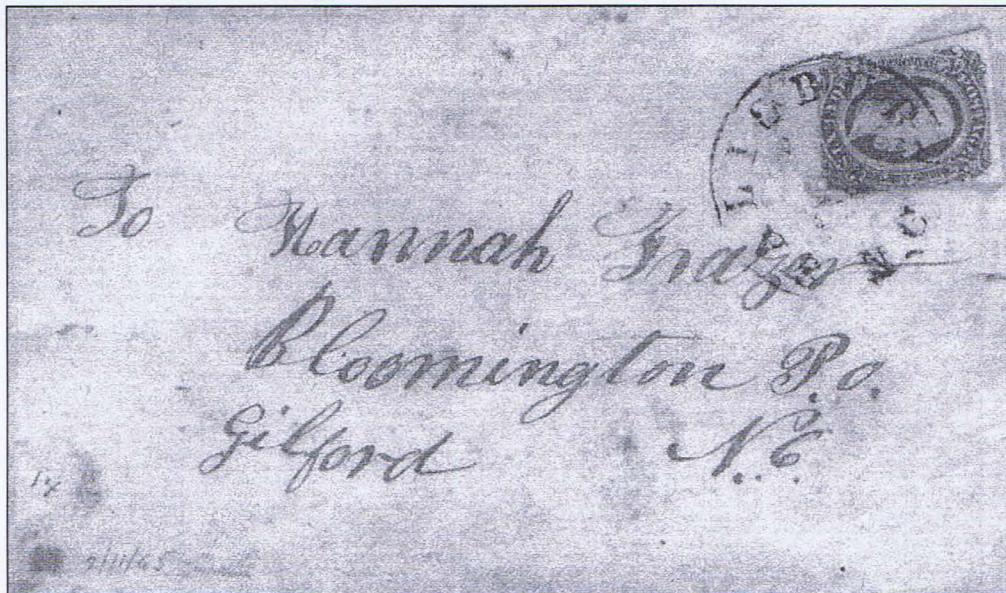 LISB N.C
To Hannah Frazer
Bloomington P.O.
Gilford N.C
14
2/11/65